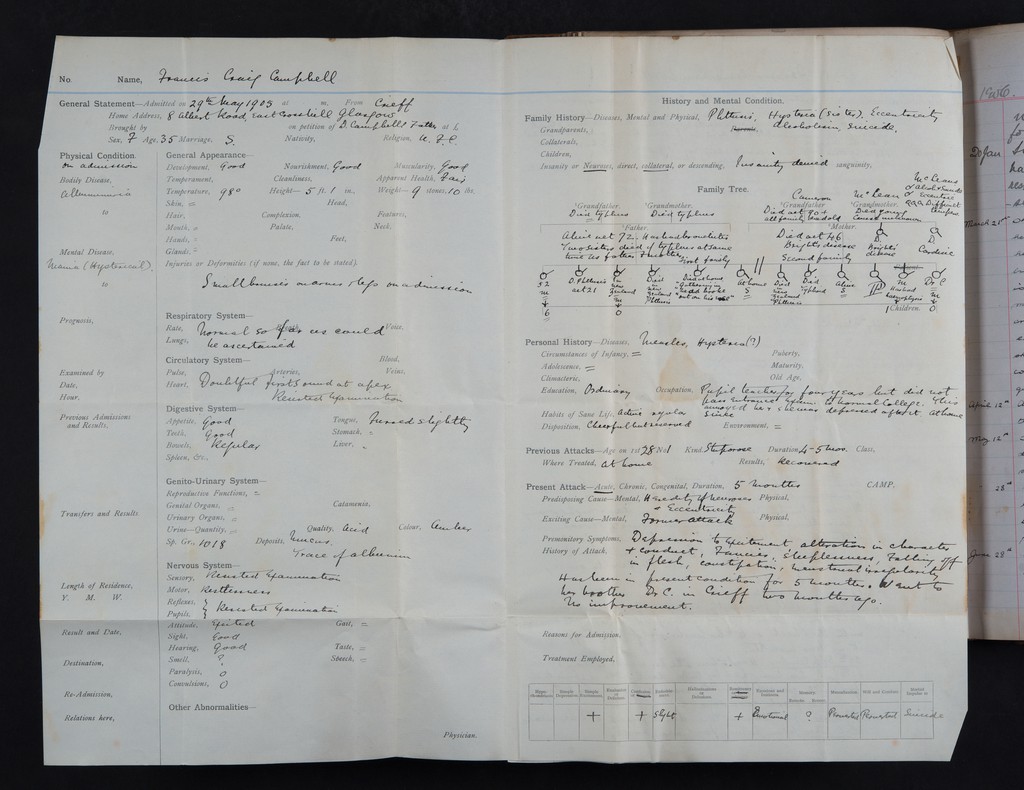 No. Name, Francis Craig Campbell
General Statement—Admitted on 29th May 1903 at m. From Crieff
Home Address, 8 Albert Road, East Crosshill Glasgow
Brought by on petition of D. Campbell Father at
Sex, F Age, 35 Marriage, S. Nativity, Religion, U.F.C.
Physical Condition.
on admission
Bodily Disease,
Albuminuria
to
Mental Disease,
Mania (Hysterical)
to
Prognosis,
Examined by
Date,
Hour.
Previous Admissions
and Results,
Transfers and Results
Length of Residence,
Y. M. W.
Result and Date,
Destination,
Re-Admission,
Relations here,
General Appearance—
Development, Good Nourishment, Good Muscularity, Good
Temperament, Cleanliness, Apparent Health, Fair
Temperature, 98° Height—5 ft. 1 in., Weight—9 stones, 10 lbs.
Skin, = Head,
Hair, Complexion, Features,
Mouth, Palate, Neck,
Hands, = Feet,
Glands, =
Injuries or Deformities (if none, the fact to be stated).
Small bruises on arms & legs on admission
Respiratory System—
Rate, Voice.
Lungs, Normal so far as could
be ascertained
Circulatory System— Blood,
Pulse, Arteries, Veins,
Heart, Doubtful first sound at apex
Resisted Examination
Digestive System—
Appetite, Good Tongue, Furred slightly
Teeth, Good Stomach,
Bowels, Regular Liver,
Spleen, &c.,
Genito-Urinary System—
Reproductive Functions, =
Genital Organs, Catamenia,
Urinary Organs,
Urine—Quantity, Quality, Acid Colour, Amber
Sp. Gr., 1018 Deposits, Mucus.
Trace of albumin
Nervous System—
Sensory, Resisted Examination
Motor, Restlessness
Reflexes,
Pupils, } Resisted Examination
Attitude, Excited Gait, =
Sight, Good
Hearing, Good Taste, =
Smell, ? Speech, =
Paralysis, 0
Convulsions, 0
Other Abnormalities—
Physician.
History and Mental Condition.
Family History—Diseases, Mental and Physical, Phthisis, Hysteria (Sister). Eccentricity
Grandparents, Alcoholism, Suicide.
Collaterals,
Children,
Insanity or Neuroses, direct, collateral, or descending, Insanity denied sanguinity,
Family Tree.
Cameron McLean
Grandfather Grandmother. Grandfather Grandmother.
Died typhus Died typhus Died aet 904 Died young
Cause unknown
Father. Mother.
Alive aet 72. Has had bronchitis Died aet 46.
Two sisters died of typhus at same Brights disease
time as father & mother
First family Second family
Brights disease Cardiac
52 m 6
D. Phthisis aet 21
Died New Zealand m 0
Died New Zealand Phthisis
Died at home
At home S
Died New Zealand Phthisis
Died Typhoid
Alive S
Dr C m 0
Children.
Personal History—Diseases, Measles, Hysteria (?)
Circumstances of Infancy, = Puberty,
Adolescence, = Maturity,
Climacteric, Old Age,
Education, Ordinary Occupation, Pupil teacher for four years but did not
pass entrance exam to Normal College. This
annoyed her & she was depressed after it. At home
since
Habits of Sane Life, Active regular
Disposition, Cheerful but reserved Environment, =
Previous Attacks—Age on 1st 28 No 1 Kind, Stuporose Duration, 4-5 mos. Class,
Where Treated, at home Results, Recovered
Present Attack—Acute, Chronic, Congenital, Duration, 5 months CAMP.
Predisposing Cause—Mental, Heredity of neuroses Physical,
& Eccentricity
Exciting Cause—Mental, Former attack Physical,
Premonitory Symptoms, Depression to Excitement alteration in character
History of Attack, & conduct, Fancies, Sleeplessness, Falling off
in flesh, constipation, menstrual irregularity
Has been in present condition for 5 months. Went to
her brother Dr C. in Crieff two months ago.
No improvement.
Reasons for Admission,
Treatment Employed,
+ + Slight + Emotional ? Perverted Perverted Suicide
1906.
20 Jan
March 21st
April 12th
May 12th
28th
June 28th